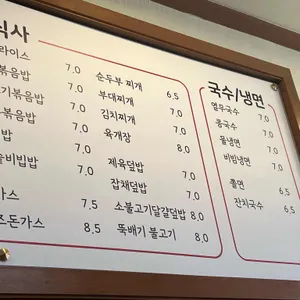 식사
라이스
볶음밥 7.0
기볶음밥 7.0
볶음밥 7.0
밥 7.0
비빔밥 7.0
가스 7.5
즈돈가스 8.5
순두부 찌개 6.5
부대찌개 7.0
김치찌개 7.0
육개장 8.0
제육덮밥 7.0
잡채덮밥 7.0
소불고기달걀덮밥 8.0
뚝배기 불고기 8.0
국수/냉면
열무국수 7.0
콩국수 7.0
물냉면 7.0
비빔냉면 7.0
쫄면 6.5
잔치국수 6.5